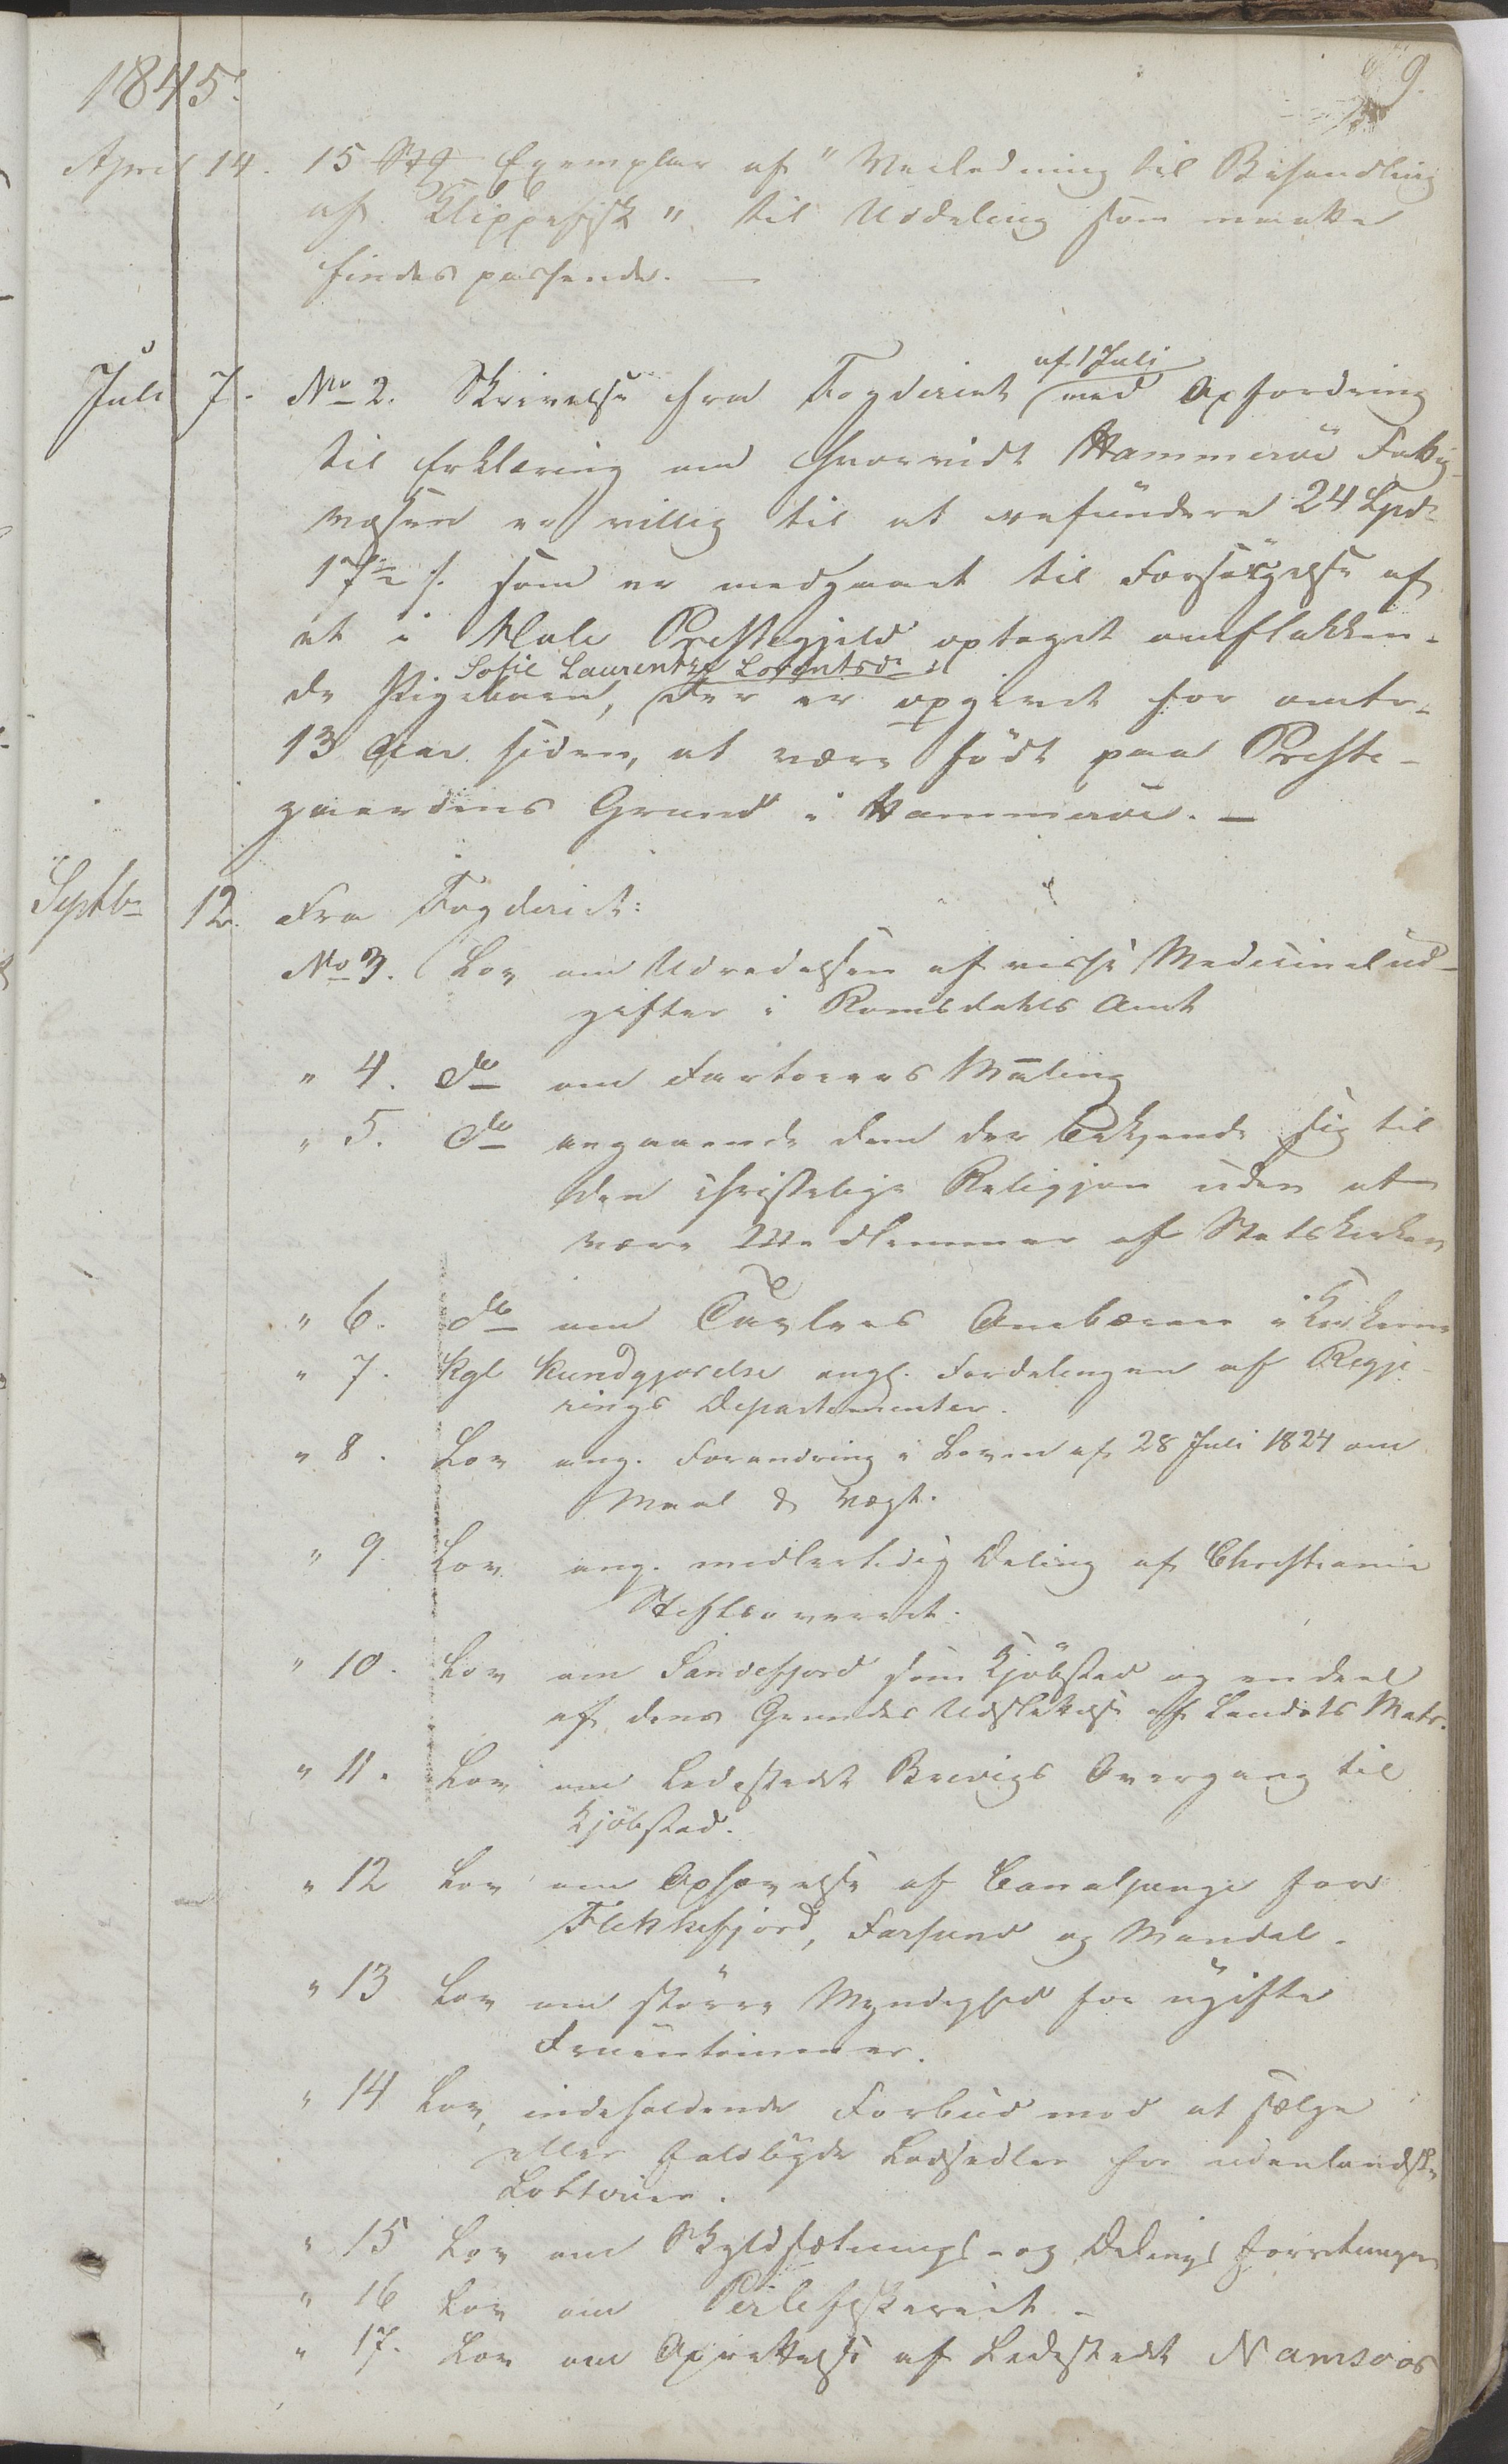 1845.
9.
April 14. 15 Stg Exemplar af "Veiledning til Behandling
af Klippefisk" til Uddeling som maatte
findes passende. —
Juli 7. No 2. Skrivelse fra Fogderiet af 1 Juli med Opfordring
til Erklæring om hvorvidt Hammerøe Fattig-
væsen er villig til at refundere 24 Spd
17½ s. som er medgaaet til Forsørgelse af
et i Præstegjeld optaget omflakken-
de Pigebarn, Sofie Laurentze Lorentsdr der er opgivet for omtr.
13 Aar siden, at være født paa Præste-
gaardens Grund i Hammerøe. —
Septbr 12. Fra Fogderiet:
No 3. Lov om Udredelsen af visse Medicinalud-
gifter i Romsdahls Amt
" 4. do om Fartøiers Måling
" 5. do angaaende dem der bekjende sig til
den christelige Religion uden at
være Medlemmer af Statskirken
" 6. do om Tavlers Ombæren i Kirkerne
" 7. Kgl Kundgjørelse angl. Fordelingen af Regje-
rings Departementer.
" 8. Lov ang. Forandring i Loven af 28 Juli 1824 om
Maal & Vægt.
" 9. Lov ang. midlertidig Deling af Christiania
Stiftsoverret.
" 10. Lov om Sandefjord som Kjøbstad og en deel
af dens Grundes Udslettelse af Landets Matr.
" 11. Lov om Ladestedet Brevigs Overgang til
Kjøbstad.
" 12 Lov om Ophævelse af Canalpenge for
Flekkefjord, Farsund og Mandal.
" 13 Lov om større Myndighed for ugifte
Fruentimmer.
" 14 Lov, indeholdende Forbud mod at sælge
eller falbyde Lodsedler for udenlandske
Lotterier.
" 15 Lov om Skyldsætnings- og Delings forretninger
" 16 Lov om Perlefiskeriet. —
" 17. Lov om Oprettelse af Ladestedet Namsoos